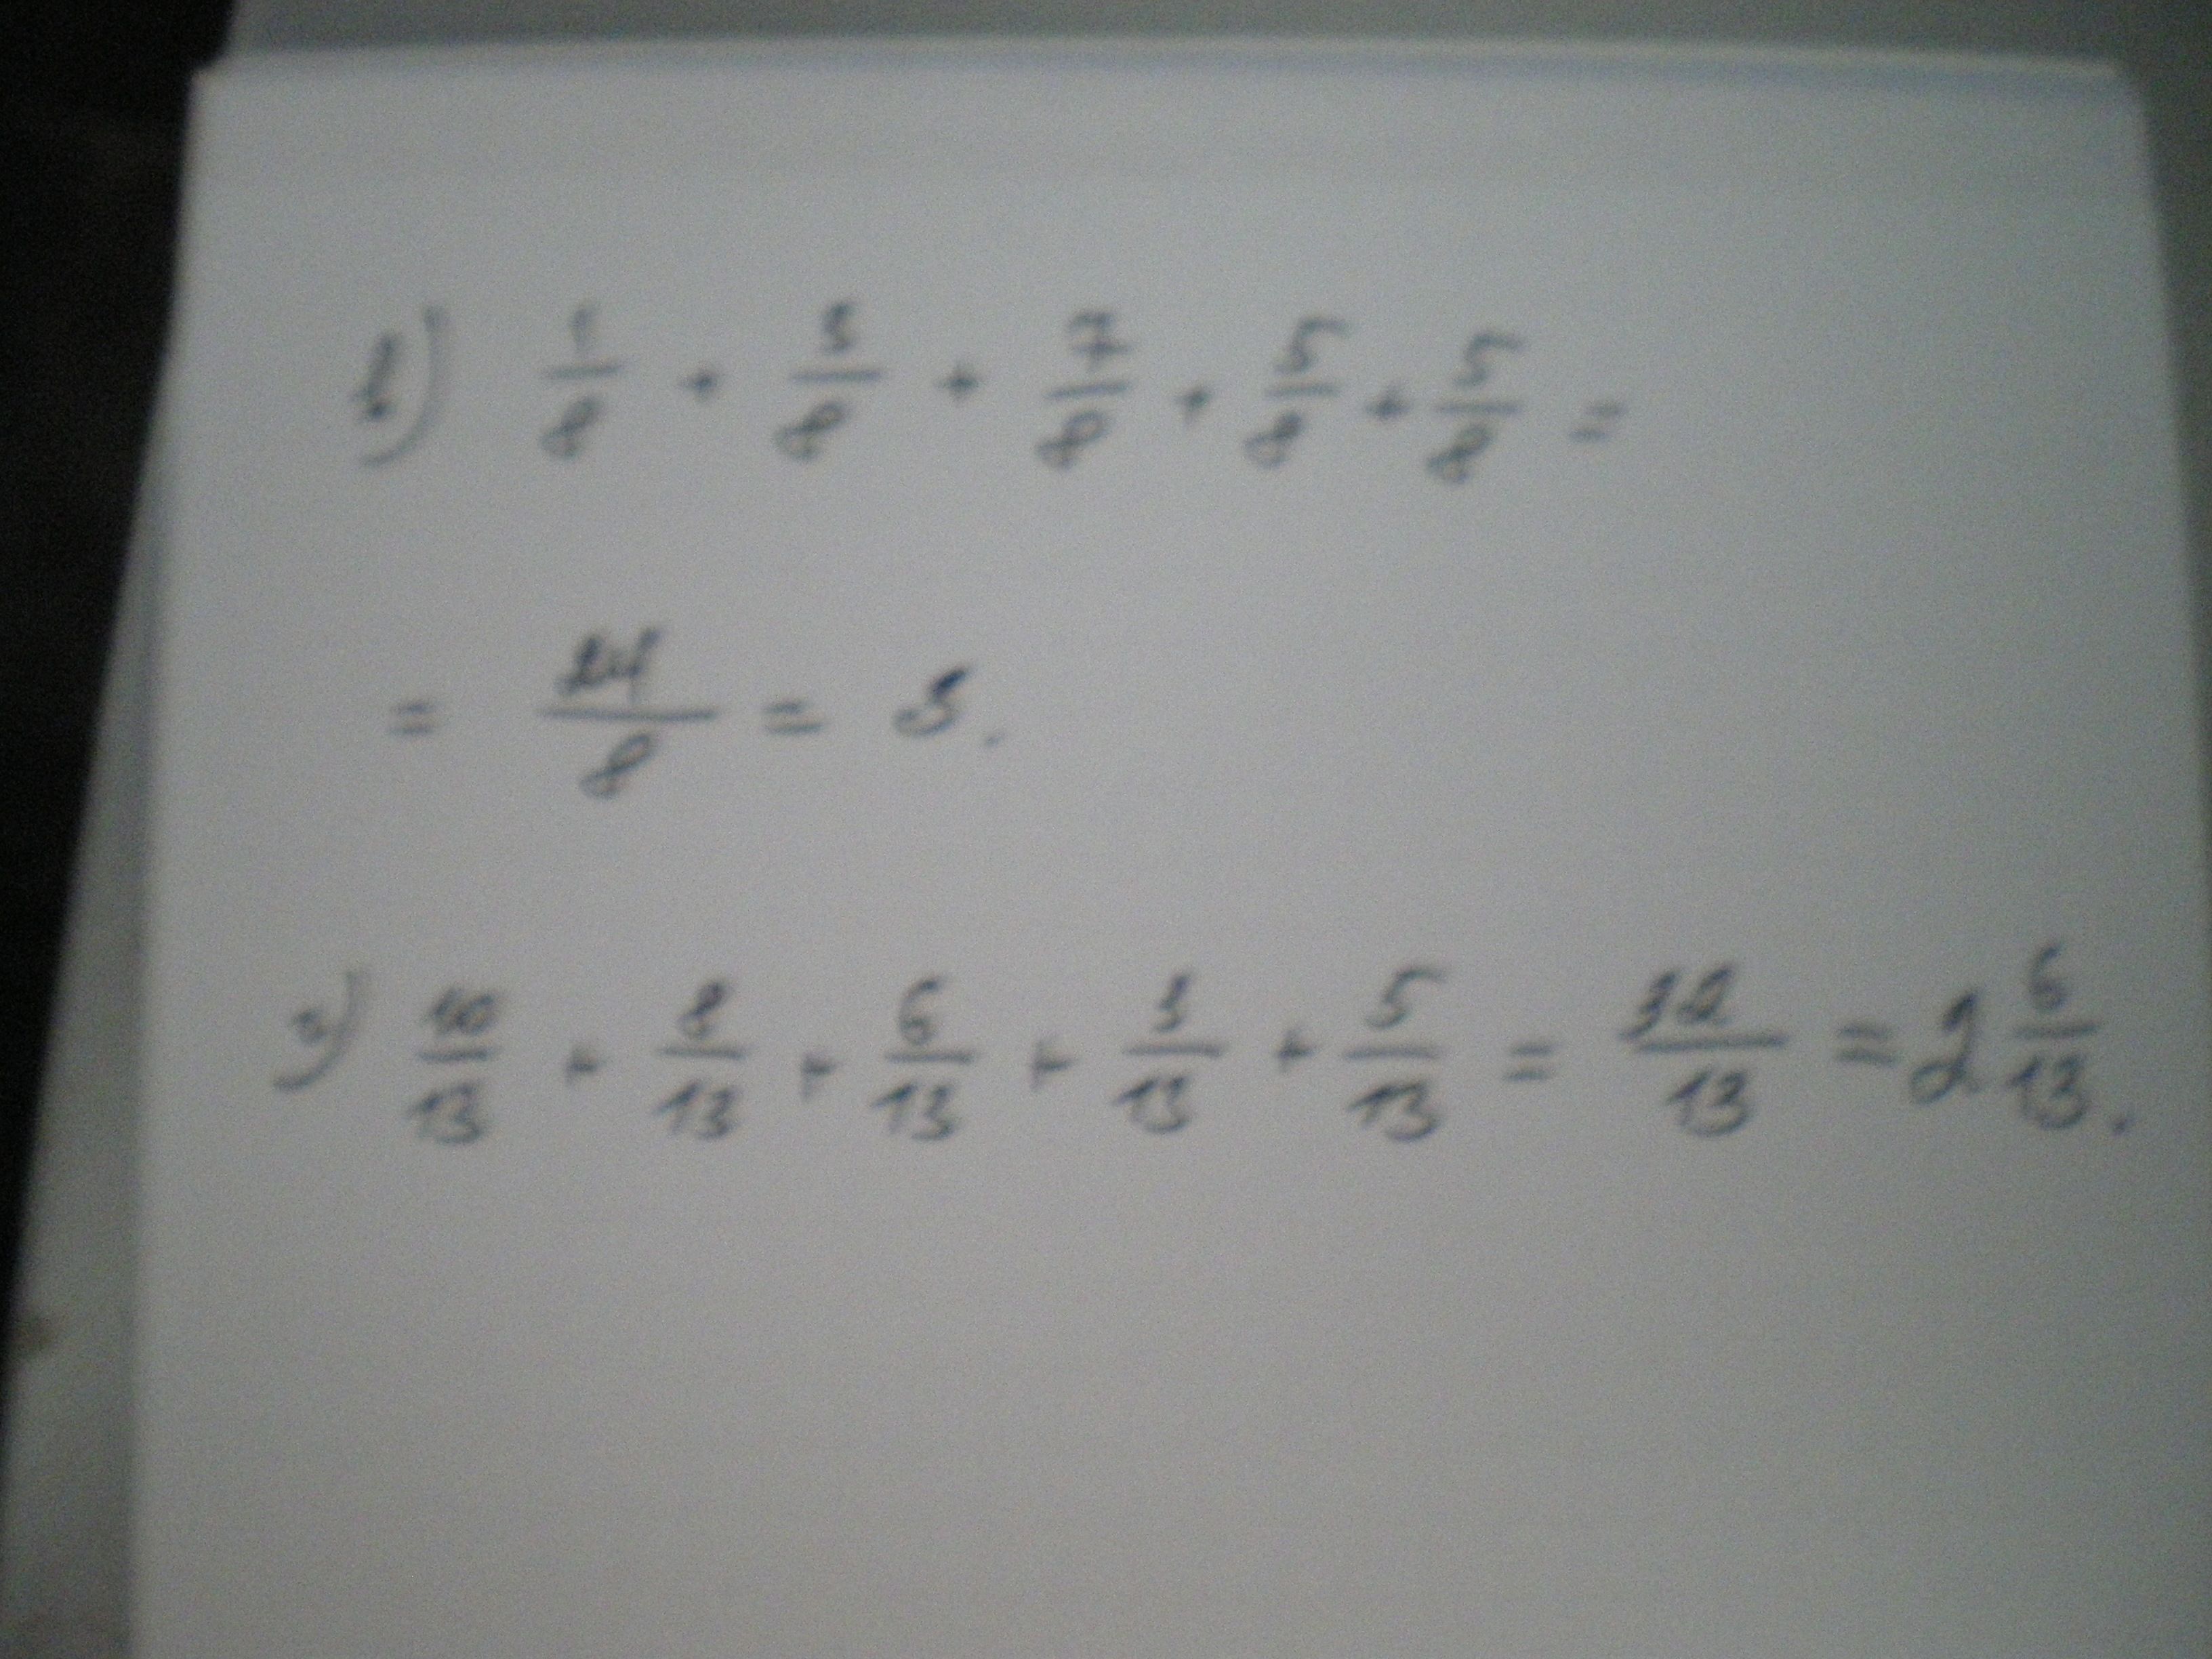 в) 1/8 + 3/8 + 7/8 + 5/8 + 5/8 =
= 24/8 = 3.
г) 10/13 + 8/13 + 6/13 + 3/13 + 5/13 = 32/13 = 2 6/13.